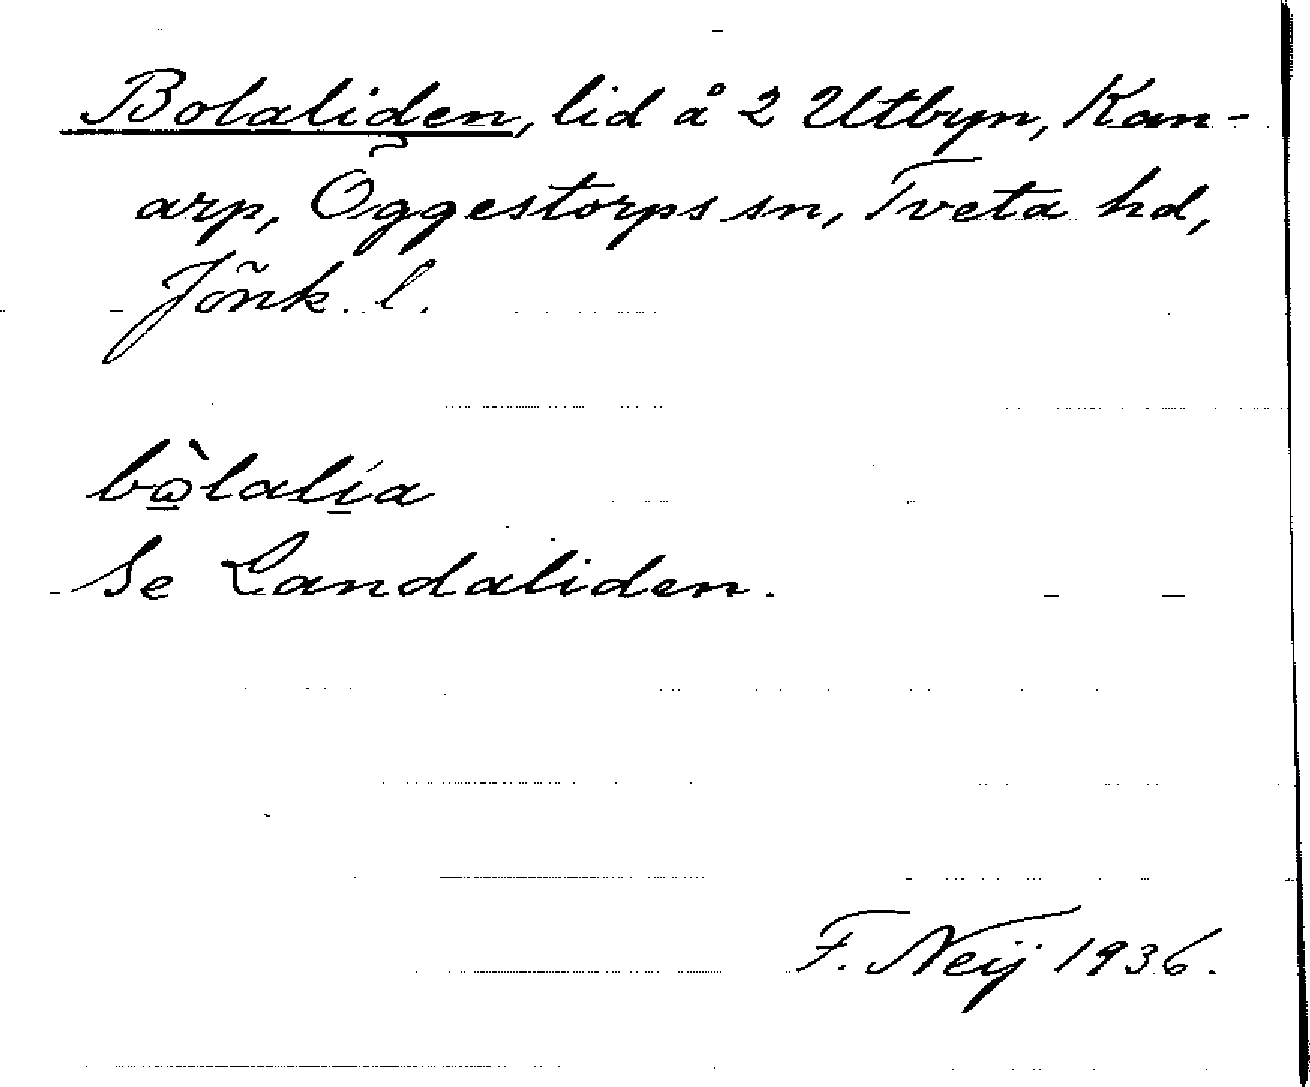 Bolaliden, lid å 2 Utbyn, Kan-
arp, Öggestorps sn, Tveta hd,
Jönk. l.
bὼlali̲a
Se Landaliden.
F. Neij 1936.